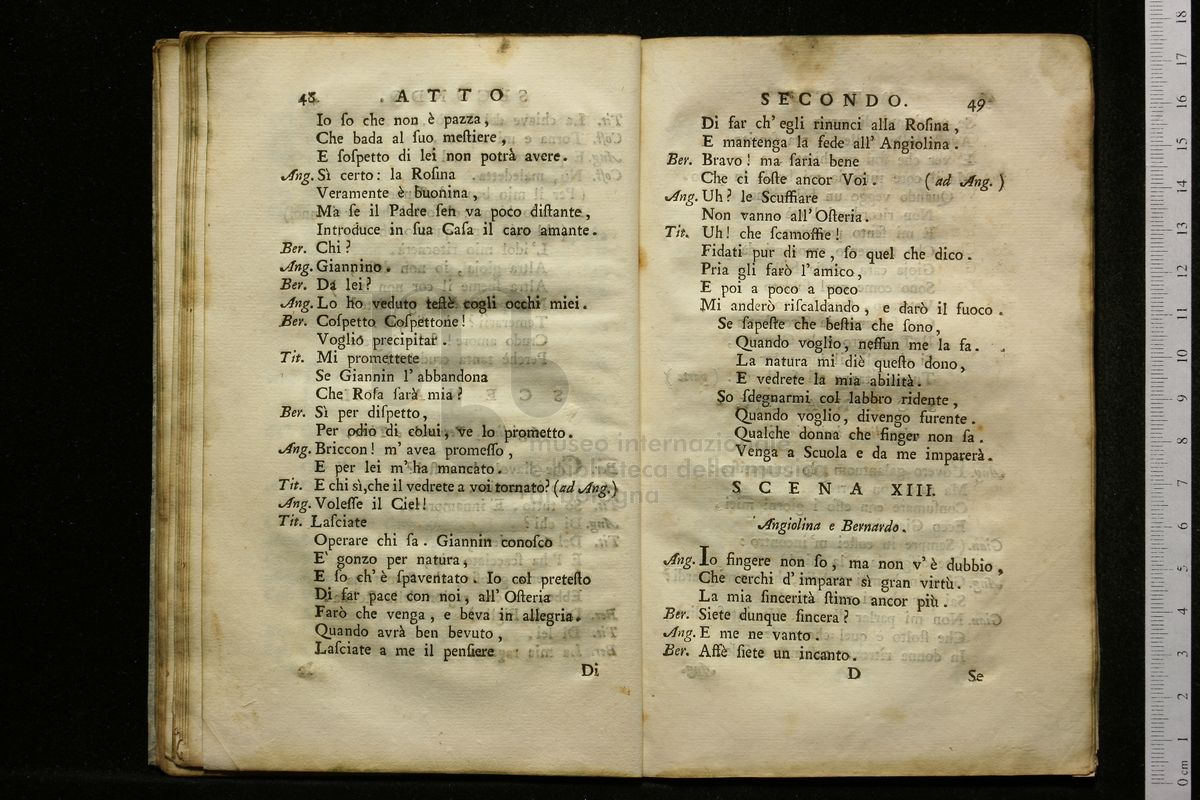 48 ATTO
Io ſo che non è pazza,
Che bada al ſuo meſtiere,
E ſoſpetto di lei non potrà avere.
Ang. Sì certo: la Roſina
Veramente è buonina,
Ma ſe il Padre ſen va poco diſtante,
Introduce in ſua Caſa il caro amante.
Ber. Chi?
Ang. Giannino.
Ber. Da lei?
Ang. Lo ho veduto teſtè cogli occhi miei.
Ber. Coſpetto Coſpettone!
Voglio precipitar.
Tit. Mi promettete
Se Giannin l'abbandona
Che Roſa ſarà mia?
Ber. Sì per diſpetto,
Per odio di colui, ve lo prometto.
Ang. Briccon! m'avea promeſſo,
E per lei m'ha mancato.
Tit. E chi sì, che il vedrete a voi tornato? (ad Ang.)
Ang. Voleſſe il Ciel!
Tit. Laſciate
Operare chi ſa. Giannin conoſco
E' gonzo per natura,
E ſo ch'è ſpaventato. Io col preteſto
Di far pace con noi, all'Oſteria
Farò che venga, e beva in allegria.
Quando avrà ben bevuto,
Laſciate a me il penſiere
Di
SECONDO. 49
Di far ch'egli rinunci alla Roſina,
E mantenga la fede all'Angiolina.
Ber. Bravo! ma ſaria bene
Che ci foſte ancor Voi. (ad Ang.)
Ang. Uh? le Scuffiare
Non vanno all'Oſteria.
Tit. Uh! che ſcamoffie!
Fidati pur di me, ſo quel che dico.
Pria gli farò l'amico,
E poi a poco a poco
Mi anderò riſcaldando, e darò il fuoco.
Se ſapeſte che beſtia che ſono,
Quando voglio, neſſun me la fa.
La natura mi diè queſto dono,
E vedrete la mia abilità.
So ſdegnarmi col labbro ridente,
Quando voglio, divengo furente.
Qualche donna che finger non ſa.
Venga a Scuola e da me imparerà.
SCENA XIII.
Angiolina e Bernardo.
Ang. Io fingere non ſo, ma non v'è dubbio,
Che cerchi d'imparar sì gran virtù.
La mia ſincerità ſtimo ancor più.
Ber. Siete dunque ſincera?
Ang. E me ne vanto.
Ber. Affè ſiete un incanto.
D Se
museo internazionale
e biblioteca della musica
di bologna
0 cm 1 2 3 4 5 6 7 8 9 10 11 12 13 14 15 16 17 18